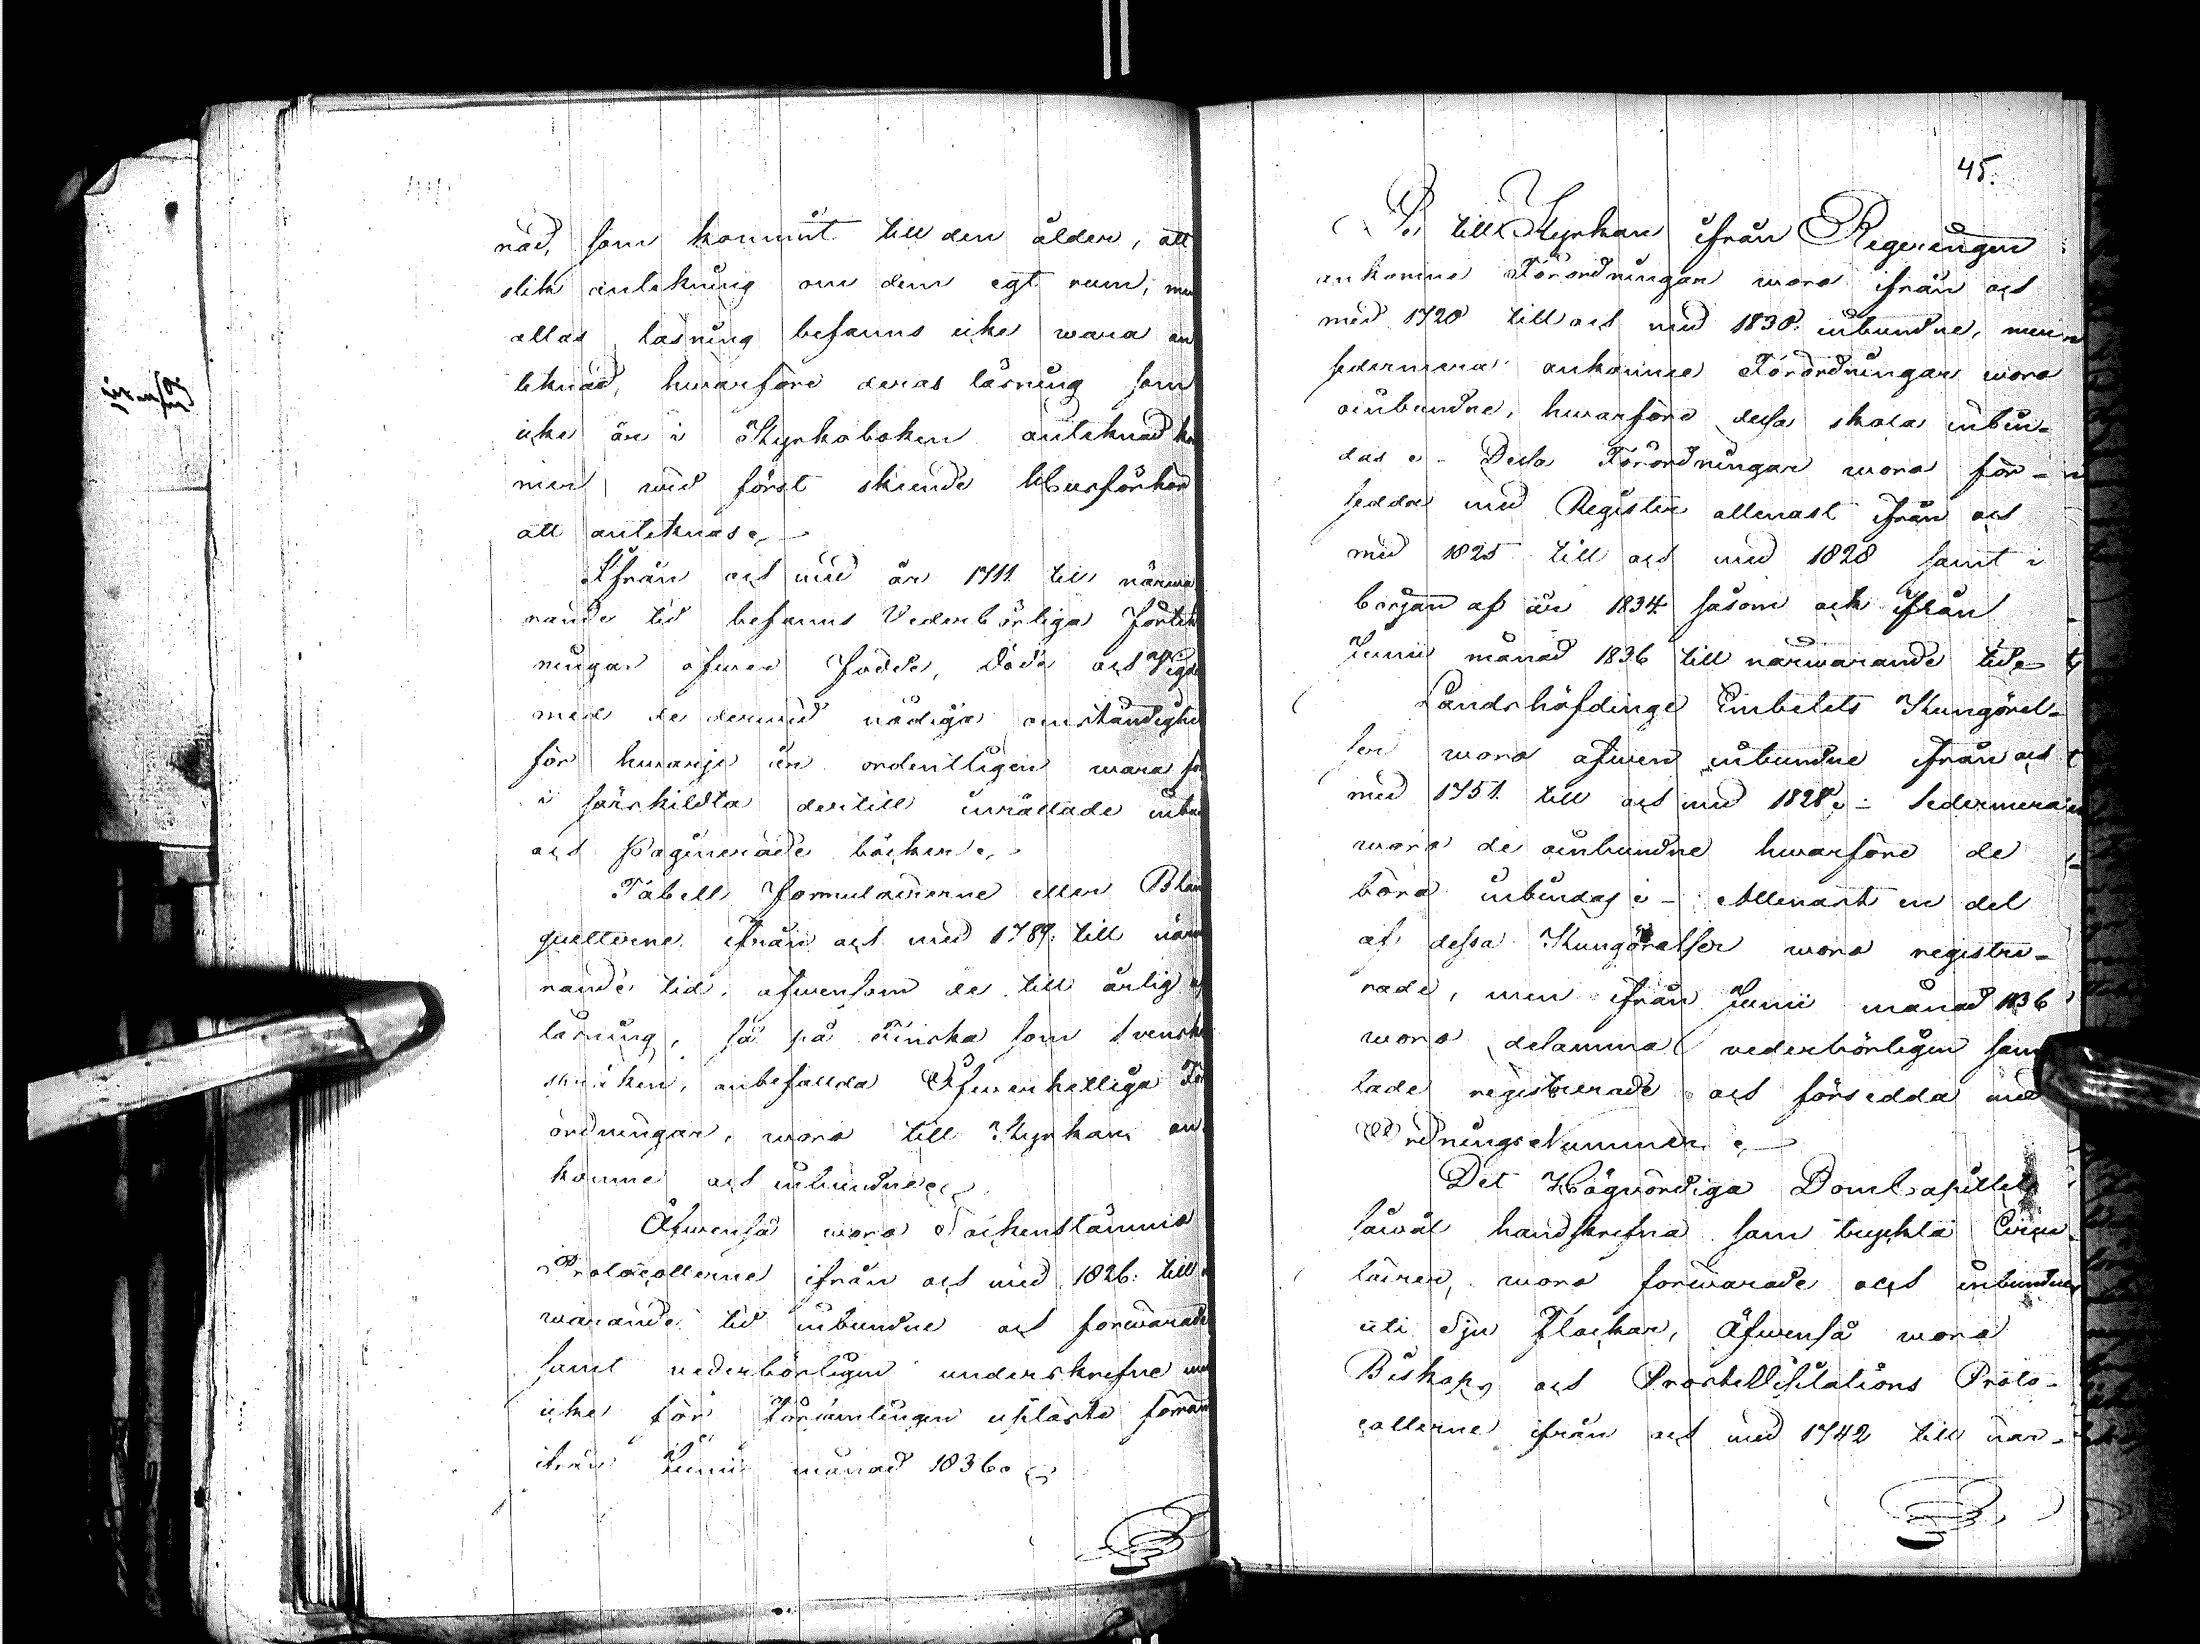 nad, som kommit till den ålder, att
slik antekning om dem egt rum, men
allas läsning befanns icke wara an
teknad, hwarföre deras läsning som
icke är i Kyrkoboken anteknad kom
mer wid först skeende Husförhör
att anteknas.
Ifrån och med år 1711 till närwa
rande tid befanns Vederbörliga Förtek
ningar öfwer Födde, Döde och Vigde
med de dermed nödiga omständighe
för hwarje år ordentligen wara för
i särskildta dertill inrättade inbun
och Paginerade böcker.
Tabell Formulairerne eller Blan
quetterne ifrån och med 1789 till närwa
rande tid, äfwensom de till årlig upp
läsning, så på Finska som Svenska
språken, anbefallda Öfwerhetliga För
ordningar, woro till Kyrkan an
komne och inbundne.
Äfwenså woro Sockenstämmo
Protocollerne ifrån och med 1826 till när
warande tid inbundne och förwarade
samt vederbörligen underskrefne men
icke för Församlingen upläste förrän
ifrån Junii månad 1836.
45.
De till Kyrkan ifrån Regeringen
ankomne Förordningar woro ifrån och
med 1720 till och med 1830 inbundne, men
sedermera ankomne Förordningar woro
oinbundne, hwarföre dessa skola inbin-
das. - Dessa Förordningar woro för-
sedda med Register allenast ifrån och
med 1825 till och med 1828 samt i
början af år 1834 såsom ock ifrån
Junii månad 1836 till närwarande tid.
Landshöfdinge Embetets Kungörel-
ser woro äfwen inbundne ifrån och
med 1751 till och med 1828. - Sedermera
woro de oinbundne hwarföre de
böra inbindas. - Allenast en del
af dessa Kungörelser woro registre-
rade, men ifrån Junii månad 1836
woro desamma vederbörligen sam
lade registrerade och försedda med
Ordnings Nummer.
Det Högwördiga DomCapitlets
såwäl handskrefna som tryckta Circu-
lairer, woro förwarade och inbundne
uti Sju Flockar, Äfwenså woro
Biskops och Prosts Visitations Proto-
collerne ifrån och med 1742 till när-